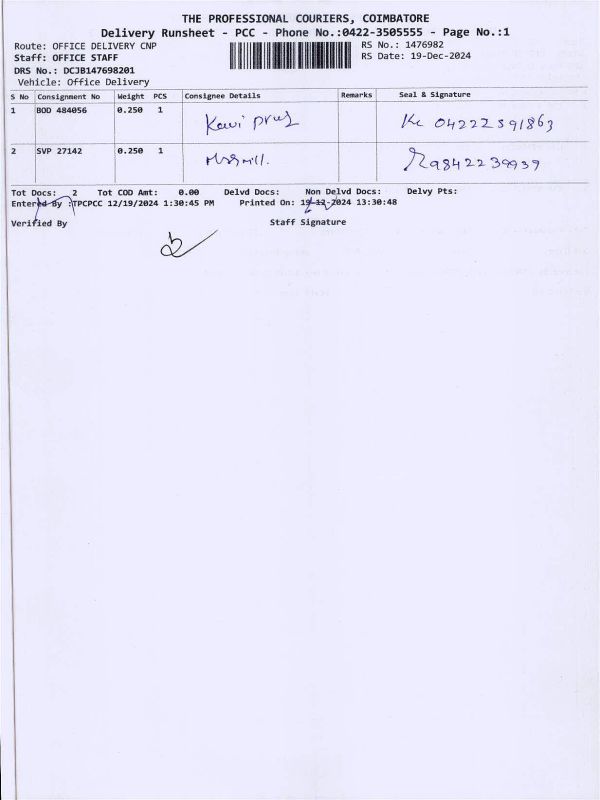 THE PROFESSIONAL COURIERS, COIMBATORE
Delivery Runsheet - PCC - Phone No.:0422-3505555 - Page No.:1
Route: OFFICE DELIVERY CNP
RS No.: 1476982
Staff: OFFICE STAFF
RS Date: 19-Dec-2024
DRS No.: DCJB147698201
Vehicle: Office Delivery
S No Consignment No Weight PCS Consignee Details Remarks Seal & Signature
1 BOD 484056 0.250 1 Kavi 04222591863
2 SVP 27142 0.250 1 9842239939
Tot Docs: 2 Tot COD Amt: 0.00 Delvd Docs: Non Delvd Docs: Delvy Pts:
Entered By :TPCPCC 12/19/2024 1:30:45 PM Printed On: 19-12-2024 13:30:48
Verified By Staff Signature